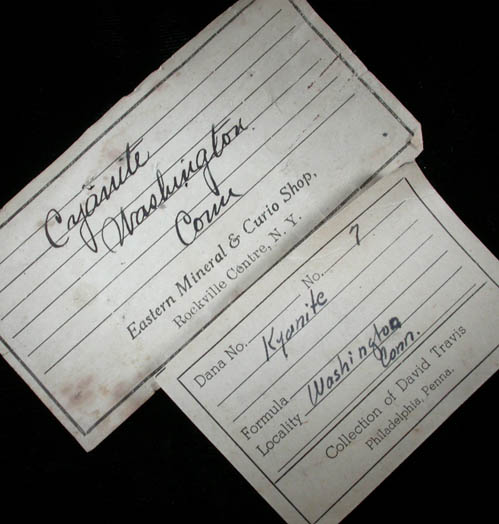 Cyanite
Washington
Conn
Eastern Mineral & Curio Shop,
Rockville Centre, N. Y.
Dana No. No. 7
Kyanite
Formula
Locality Washington
Conn.
Collection of David Travis
Philadelphia, Penna.